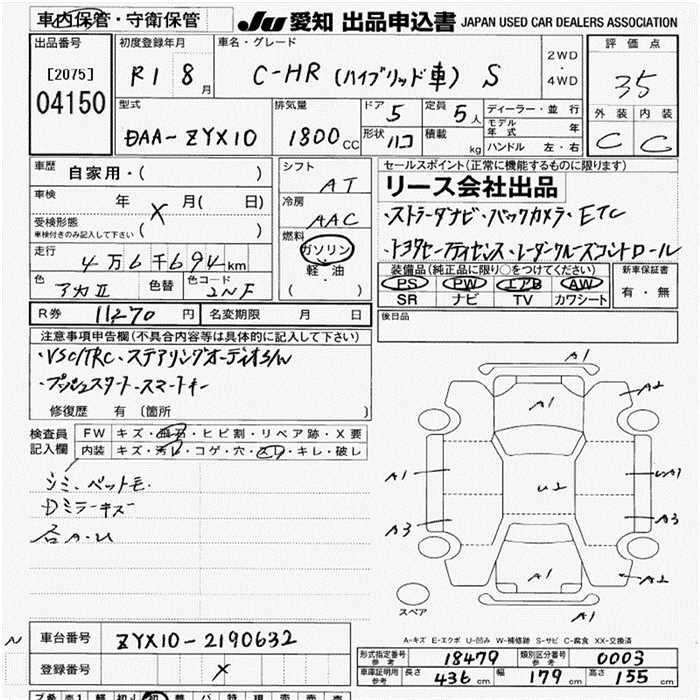 車内保管・守衛保管
JU 愛知 出品申込書 JAPAN USED CAR DEALERS ASSOCIATION
出品番号
[2075]
04150
初度登録年月
R1 8月
車名・グレード
C-HR (ハイブリッド車) S
2WD
・
4WD
評価点
3.5
外装 内装
C C
型式
DAA-ZYX10
排気量
1800CC
ドア 5
形状 ハコ
定員 5人
積載 kg
ディーラー・並行
モデル年式 年
ハンドル 左・右
車歴 自家用・( )
車検 年 X 月( 日)
受検形態
車検付きのみ記入して下さい ( )
走行 4万6千694km
色 アカII 色替 色コード 2NF
シフト AT
冷房 AAC
燃料
ガソリン
・
軽油
( )
セールスポイント(正常に機能するものに限ります)
リース会社出品
・ストラーダナビ・バックカメラ・ETC
・トヨタセーフティセンス・レーダークルーズコントロール
装備品(純正品に限り○をつけてください)
PS PW エアB AW
SR ナビ TV カワシート
新車保証書
有・無
R券 11270円 名変期限 月 日
後日品
注意事項申告欄(不具合内容等は具体的に記入して下さい)
・VSC/TRC・ステアリングオーディオS/W
・プッシュスタート・スマートキー
修復歴 有 (箇所 )
検査員記入欄
FW キズ・飛石・ヒビ割・リペア跡・X要
内装 キズ・汚レ・コゲ・穴・スレ・キレ・破レ
シミ・ペット毛
Dミラーキズ
各A・U
A1
A1 A2
A1 U2 A1
A3 A3
A1 A2
A1
スペア
A-キズ E-エクボ U-凹み W-補修跡 S-サビ C-腐食 XX-交換済
N
車台番号 ZYX10-2190632
登録番号 X
形式指定番号 参考 18479 類別区分番号 参考 0003
車庫証明用 参考 長さ 436cm 幅 179cm 高さ 155cm